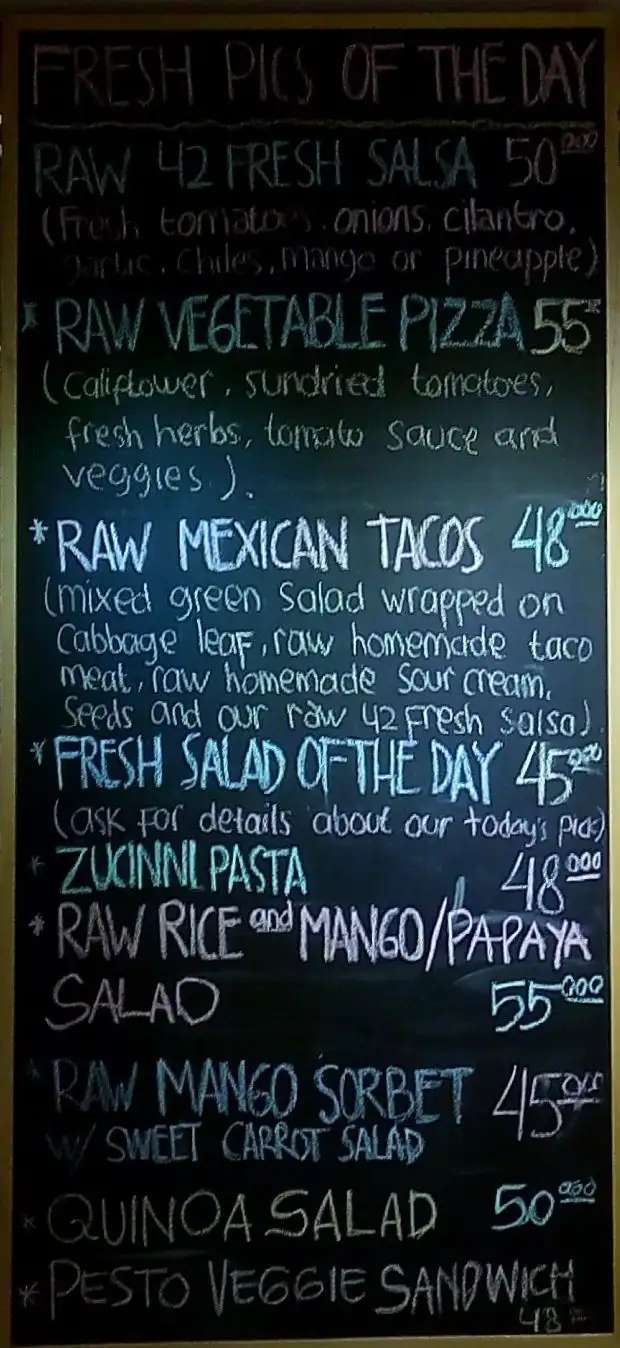 FRESH PICS OF THE DAY
RAW 42 FRESH SALSA 50 000
(Fresh tomatoes, onions, cilantro,
garlic, chiles, mango or pineapple)
* RAW VEGETABLE PIZZA 55
(Califlower, sundried tomatoes,
fresh herbs, tomato sauce and
veggies).
* RAW MEXICAN TACOS 48 000
(mixed green salad wrapped on
cabbage leaf, raw homemade taco
meat, raw homemade sour cream,
seeds and our raw 42 fresh salsa)
* FRESH SALAD OF THE DAY 45 000
(ask for details about our today's pick)
* ZUCINNI PASTA 48 000
* RAW RICE and MANGO/PAPAYA
SALAD 55 000
* RAW MANGO SORBET 45 000
W/ SWEET CARROT SALAD
* QUINOA SALAD 50 000
* PESTO VEGGIE SANDWICH
48